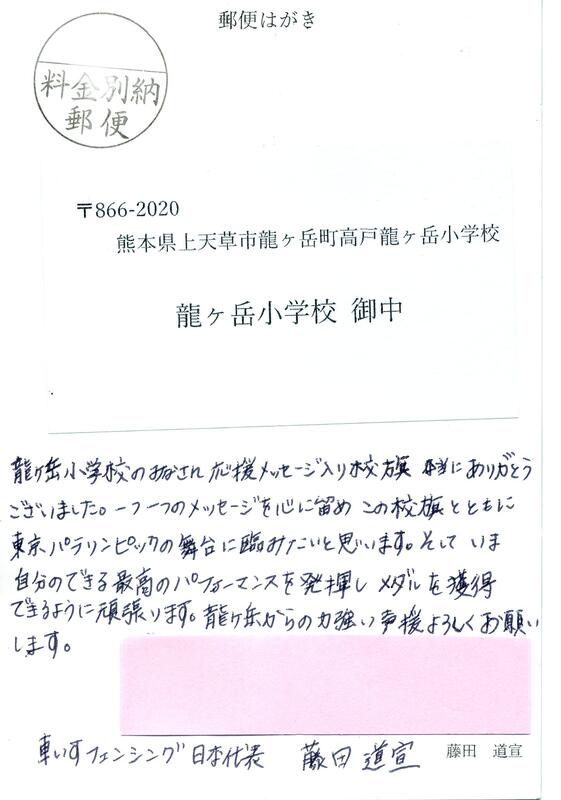 郵便はがき
料金別納
郵便
〒866-2020
熊本県上天草市龍ヶ岳町高戸龍ヶ岳小学校
龍ヶ岳小学校 御中
龍ヶ岳小学校のみなさん 応援メッセージ入り校旗 本当にありがとう
ございました。一つ一つのメッセージを心に留め この校旗とともに
東京パラリンピックの舞台に臨みたいと思います。そして いま
自分のできる最高のパフォーマンスを発揮し メダルを獲得
できるように頑張ります。龍ヶ岳からの力強い声援よろしくお願い
します。
車いすフェンシング日本代表 藤田道宣 藤田 道宣